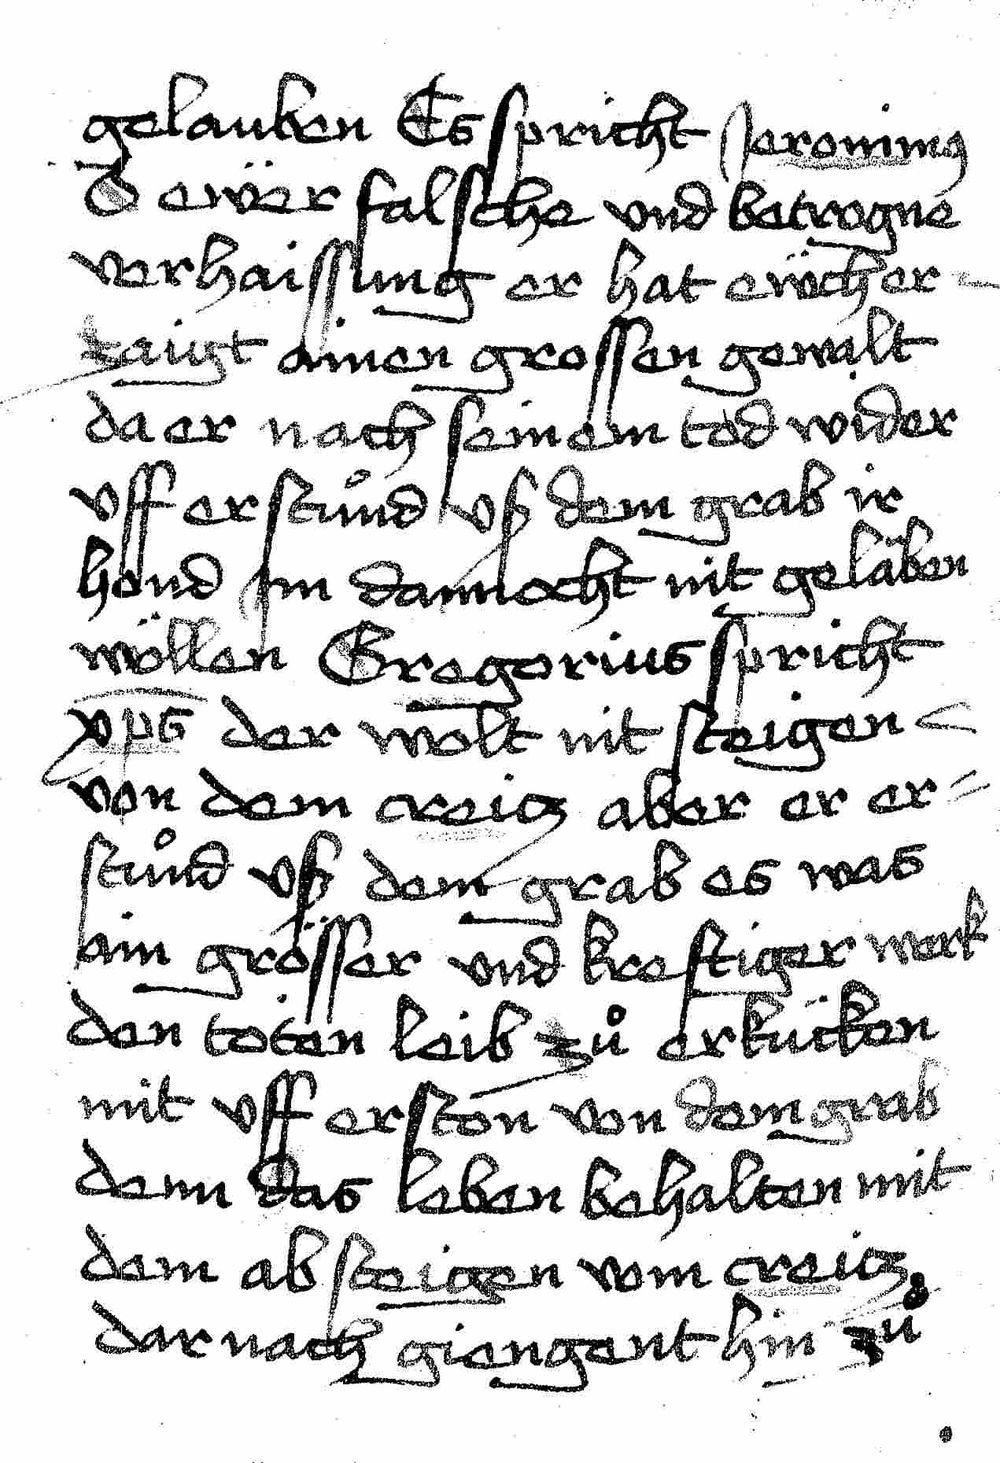 gelauben Es spricht Jeronimus
O ewer falsche vnd betrogne
verhaissung er hat ewch er-
zaigt ainen grossen gewalt
da er nach seinem tod wider
vff erstůnd vß dem grab ir
hond im dannocht nit geläben
wöllen Gregorius spricht
xps der wolt nit steigen
von dem creitz aber er er-
stůnd vß dem grab es was
ain grösser vnd kreftiger werk
den toten leib zů erkücken
mit vff erston von dem grab
denn das leben behalten mit
dem ab steigen vom creitz
dar nach giengent hin zů